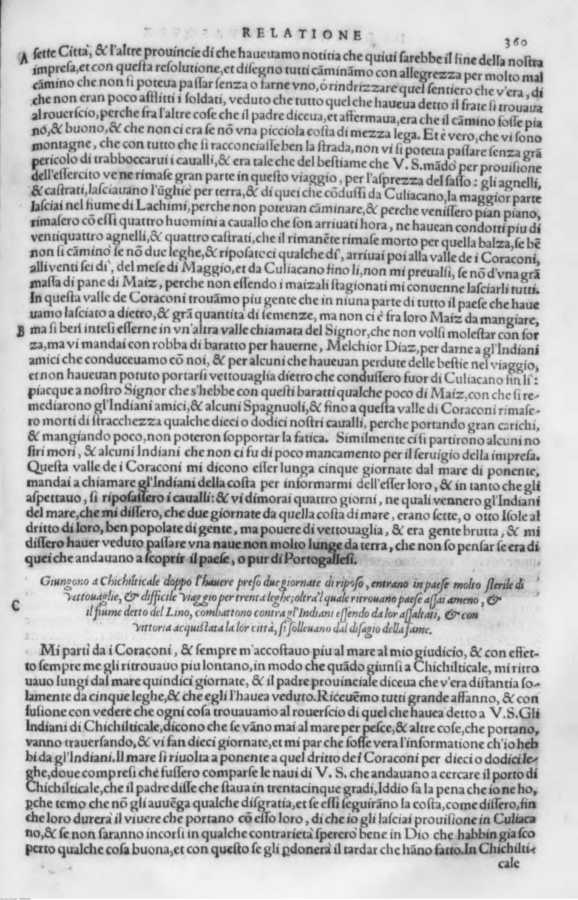 RELATIONE
360
A sette Città, & l'altre prouincie di che haueuamo notitia che quiui sarebbe il fine della nostra
impresa, et con questa resolutione, et disegno tutti cāmināmo con allegrezza per molto mal
cāmino che non si poteua passar senza o farne vno, o rindrizzare quel sentiero che v'era, di
che non eran poco afflitti i soldati, veduto che tutto quel che haueua detto il frate si trouaua
al rouerscio, perche fra l'altre cose che il padre diceua, et affermaua, era che il cāmino fosse pia
no, & buono, & che non ci era se nō vna picciola costa di mezza lega. Et è vero, che vi sono
montagne, che con tutto che si racconciasse ben la strada, non vi si poteua passare senza grā
pericolo di trabboccarui i caualli, & era tale che del bestiame che V. S. mādò per prouisione
dell'essercito ve ne rimase gran parte in questo viaggio, per l'asprezza del sasso: gli agnelli,
& castrati, lasciauano l'ūghie per terra, & di quei che cōdussi da Culiacano, la maggior parte
lasciai nel fiume di Lachimi, perche non poteuan cāminare, & perche venissero pian piano,
rimasero cō essi quattro huomini a cauallo che son arriuati hora, ne hauean condotti piu di
ventiquattro agnelli, & quattro castrati, che il rimanēte rimase morto per quella balza, se bē
non si cāminò se nō due leghe, & riposateci qualche dì, arriuai poi alla valle de i Coraconi,
alli venti sei dì, del mese di Maggio, et da Culiacano fino lì, non mi preualsi, se nō d'vna grā
massa di pane di Maiz, perche non essendo i maizali stagionati mi conuenne lasciarli tutti.
In questa valle de Coraconi trouāmo piu gente che in niuna parte di tutto il paese che haue
uamo lasciato a dietro, & grā quantita di semenze, ma non ci è fra loro Maiz da mangiare,
B ma sì beri intesi esserne in vn'altra valle chiamata del Signor, che non volsi molestar con for
za, ma vi mandai con robba di baratto per hauerne, Melchior Diaz, per darne a gl'Indiani
amici che conduceuamo cō noi, & per alcuni che haueuan perdute delle bestie nel viaggio,
et non haueuan potuto portarsi vettouaglia dietro che condussero fuor di Culiacano fin lì:
piacque a nostro Signor che s'hebbe con questi baratti qualche poco di Maiz, con che si re-
mediarono gl'Indiani amici, & alcuni Spagnuoli, & fino a questa valle di Coraconi rimase-
ro morti di stracchezza qualche dieci o dodici nostri caualli, perche portando gran carichi,
& mangiando poco, non poteron sopportar la fatica. Similmente ci si partirono alcuni no
stri mori, & alcuni Indiani che non ci fu di poco mancamento per il seruigio della impresa.
Questa valle de i Coraconi mi dicono esser lunga cinque giornate dal mare di ponente,
mandai a chiamare gl'Indiani della costa per informarmi dell'esser loro, & in tanto che gli
aspettauo, si riposassero i caualli: & vi dimorai quattro giorni, ne quali vennero gl'Indiani
del mare, che mi dissero, che due giornate da quella costa di mare, erano sette, o otto Isole al
dritto di loro, ben popolate di gente, ma pouere di vettouaglia, & era gente brutta, & mi
dissero hauer veduto passare vna naue non molto lunge da terra, che non so pensar se era di
quei che andauano a scoprir il paese, o pur di Portogallesi.
Giungono a Chichilticale doppo l'hauere preso due giornate di riposo, entrano in paese molto sterile di
C vettouaglie, & difficile viaggio per trenta leghe, oltra'l quale ritrouano paese assai ameno, &
il fiume detto del Lino, combattono contra gl'Indiani essendo da lor assaltati, & con
vittoria acquistata la lor città, si solleuano dal disagio della fame.
Mi parti da i Coraconi, & sempre m'accostauo piu al mare al mio giudicio, & con effet-
to sempre me gli ritrouauo piu lontano, in modo che quādo giunsi a Chichilticale, mi ritro
uauo lungi dal mare quindici giornate, & il padre prouinciale diceua che v'era distantia so-
lamente da cinque leghe, & che egli l'hauea veduto. Riceuēmo tutti grande affanno, & con
fusione con vedere che ogni cosa trouauamo al rouerscio di quel che hauea detto a V. S. Gli
Indiani di Chichilticale, dicono che se vāno mai al mare per pesce, & altre cose, che portano,
vanno trauersando, & vi fan dieci giornate, et mi par che fosse vera l'informatione ch'io heb
bi da gl'Indiani. Il mare si riuolta a ponente a quel dritto de i Coraconi per dieci o dodici le-
ghe, doue compresi che fussero comparse le naui di V. S. che andauano a cercare il porto di
Chichilticale, che il padre disse che staua in trentacinque gradi, Iddio sa la pena che io ne ho,
ꝑche temo che nō gli auuēga qualche disgratia, et se essi seguirāno la costa, come dissero, fin
che loro durerà il viuere che portano cō esso loro, di che io gli lasciai prouisione in Culiaca
no, & se non saranno incorsi in qualche contrarietà spererò bene in Dio che habbin gia sco
perto qualche cosa buona, et con questo se gli ꝑdonerà il tardar che hāno fatto. In Chichilti-
cale